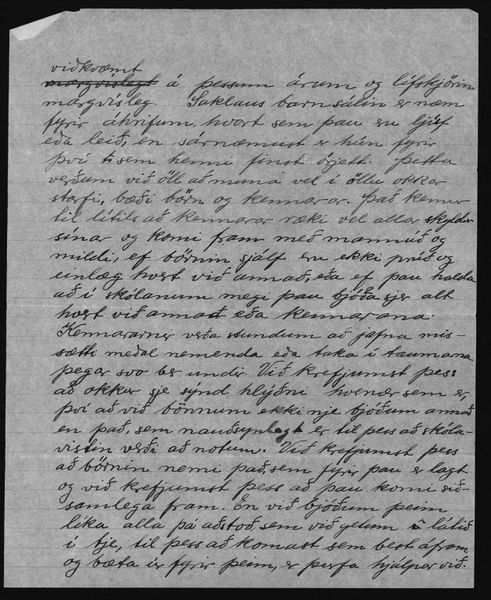 viðkvæmt
margvíslegt á þessum árum og lífskjörin
margvísleg. Saklaus barnsálin er næm
fyrir áhrifum, hvort sem þau eru ljúf
eða leið, en sárnæmust er hún fyrir
því sem henni finst órjett. Þetta
verðum við öll að muna vel í öllu okkar
starfi, bæði börn og kennarar. Það kemur
til lítils að kennarar ræki vel allar skyldur
sínar og komi fram með mannúð og
mildi, ef börnin sjálf eru ekki prúð og
einlæg hvert við annað, eða ef þau halda
að í skólanum megi þau bjóða sjer alt
hvert við annað eða kennarana.
Kennararnir verða stundum að jafna mis-
sætti meðal nemenda eða taka í taumana
þegar svo ber undir. Við krefjumst þess
að okkur sje sýnd hlýðni hvenær sem er,
því að við bönnum ekki nje bjóðum annað
en það, sem nauðsynlegt er til þess að skóla-
vistin verði að notum. Við krefjumst þess
að börnin nemi það, sem fyrir þau er lagt
og við krefjumst þess að þau komi sið-
samlega fram. En við bjóðum þeim
líka alla þá aðstoð sem við getum látið
í tje, til þess að komast sem best áfram,
og bæta úr fyrir þeim, er þurfa hjálpar við.